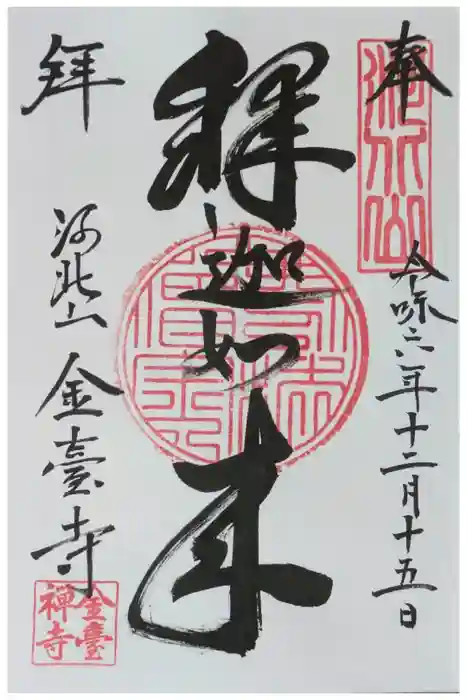 奉
河北山
令咊六年十二月十五日
釋迦如来
拝
河北山 金臺寺
金臺
禅寺